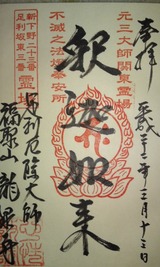 奉拝
平成二十二年三月十三日
元三大師関東霊場
釈迦如来
不滅之法燈奉安所
新下野三十三番
足利坂東三番
霊場
足利厄除大師
福聚山 龍泉寺